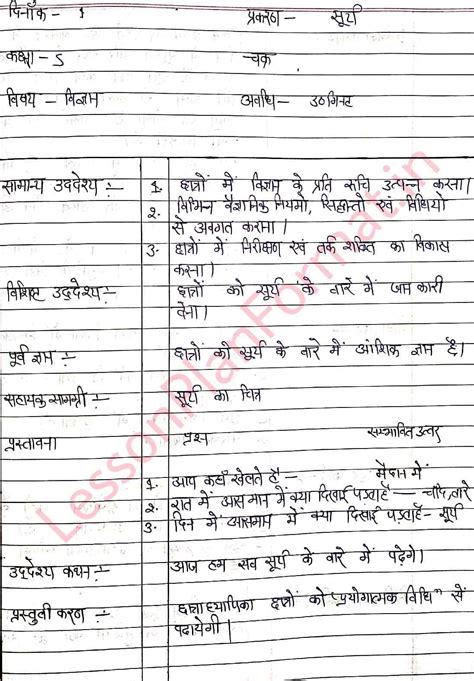 दिनाँक - 1 प्रकरण - सूर्य
कक्षा - 5 -चक्र
विषय - विज्ञान अवधि - 30 मिनट
सामान्य उद्देश्य :- 1. छात्रों में विज्ञान के प्रति रूचि उत्पन्न करना।
2. विभिन्न वैज्ञानिक नियमो, सिद्धान्तो एवं विधियो
से अवगत कराना।
3. छात्रों में निरीक्षण एवं तर्क शक्ति का विकास
करना।
विशिष्ट उद्देश्य :- छात्रों को सूर्य के बारे में जानकारी
देना।
पूर्व ज्ञान :- छात्रों को सूर्य के बारे में आंशिक ज्ञान है।
सहायक सामग्री :- सूर्य का चित्र
प्रस्तावना प्रश्न सम्भावित उत्तर
1. आप कहाँ खेलते है - मैदान में
2. रात में आसमान में क्या दिखाई पड़ता है - चाँद, तारे
3. दिन में आसमान में क्या दिखाई पड़ता है - सूर्य
उद्देश्य कथन :- आज हम सब सूर्य के बारे में पढ़ेगे।
प्रस्तुतीकरण :- छात्राध्यापिका छात्रों को "प्रयोगात्मक विधि" से
पढायेगी।
LessonPlanFormat.in